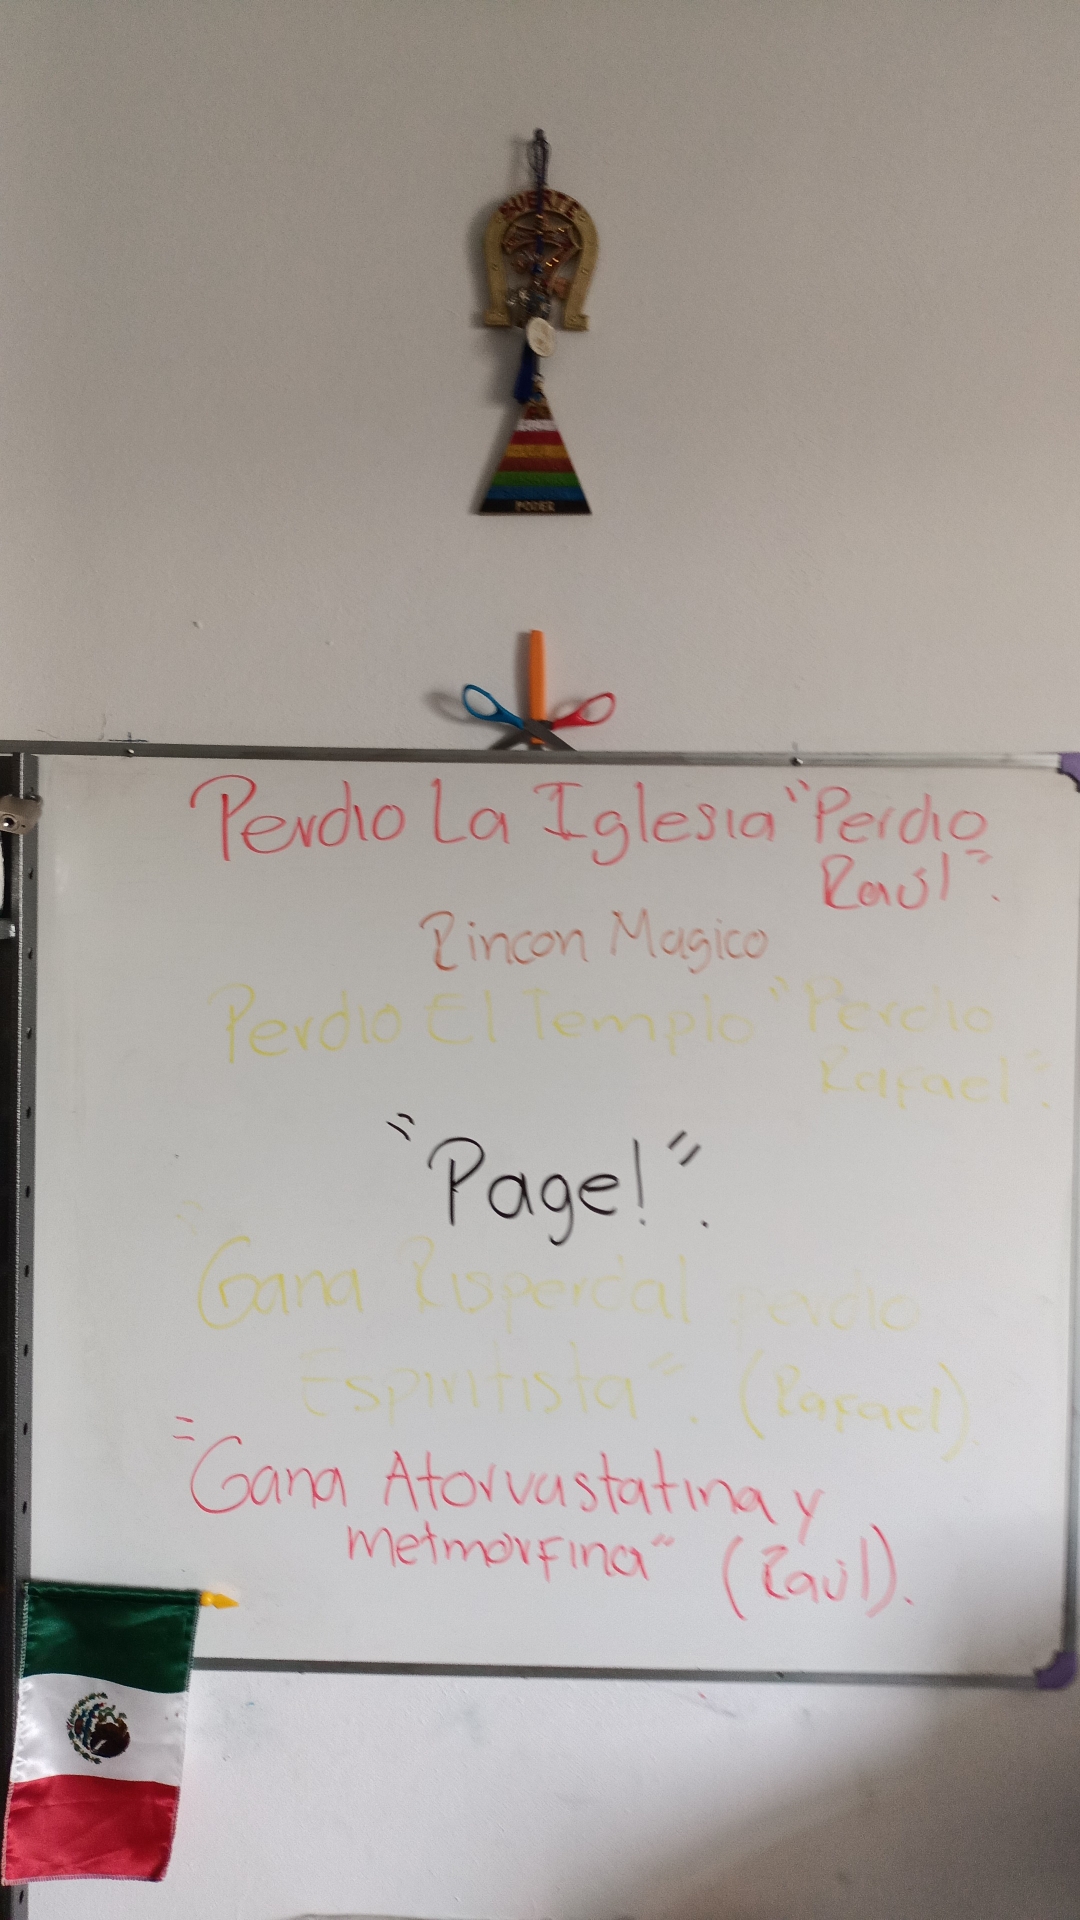 SUERTE
PODER
Perdio La Iglesia "Perdio
Raúl".
Rincon Magico
Perdio El Templo "Perdio
Rafael".
"Page!".
"Gana Risperdal perdio
Espiritista". (Rafael).
"Gana Atorvastatina y
metmorfina" (Raúl).